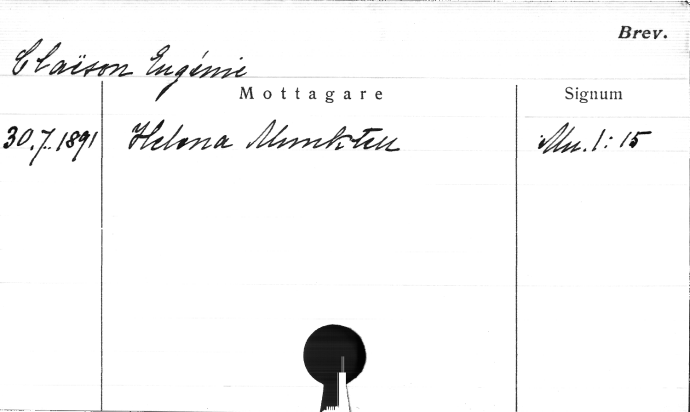 Brev.
Claïson Eugénie
Mottagare Signum
30.7.1891 Helena Munktell Mu. 1:15